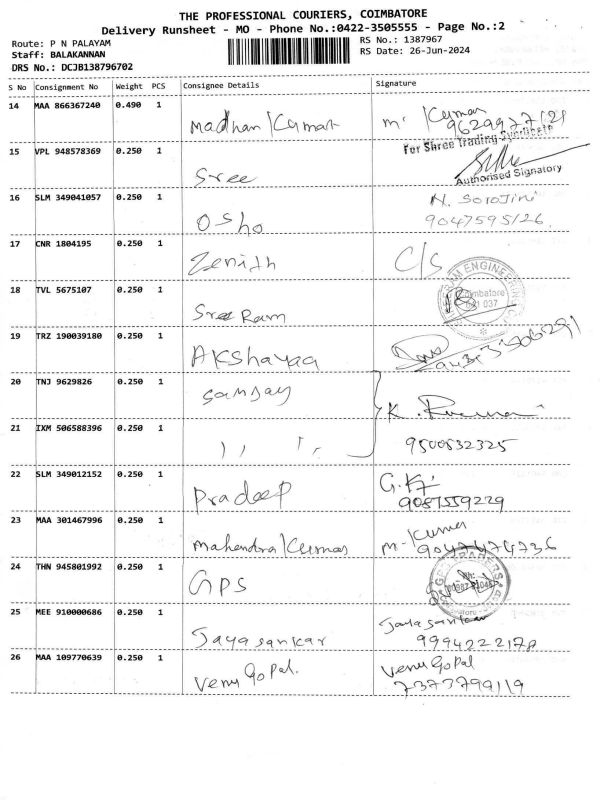 THE PROFESSIONAL COURIERS, COIMBATORE
Delivery Runsheet - MO - Phone No.:0422-3505555 - Page No.:2
Route: P N PALAYAM
Staff: BALAKANNAN
DRS No.: DCJB138796702
RS No.: 1387967
RS Date: 26-Jun-2024
S No Consignment No Weight PCS Consignee Details Signature
14 MAA 866367240 0.490 1 Madhan Kumar M. Kumar
For Shree Trading Syndicate
15 VPL 948578369 0.250 1 Sree
Authorised Signatory
16 SLM 349041057 0.250 1 Osho N. Sorojini
9047595126
17 CNR 1804195 0.250 1 Zenith C/S
18 TVL 5675107 0.250 1 Sree Ram
19 TRZ 190039180 0.250 1 Akshayaa
20 TNJ 9629826 0.250 1 Samsay
21 IXM 506588396 0.250 1 ,, ,,
9500532325
22 SLM 349012152 0.250 1 Pradeep
9087559229
23 MAA 301467996 0.250 1 Mahendra Kumar M. Kumar
9047474736
24 THN 945801992 0.250 1 GPS
25 MEE 910000686 0.250 1 Jayasankar Jayasankar
9994222178
26 MAA 109770639 0.250 1 Venu Gopal. Venu Gopal
7373799119